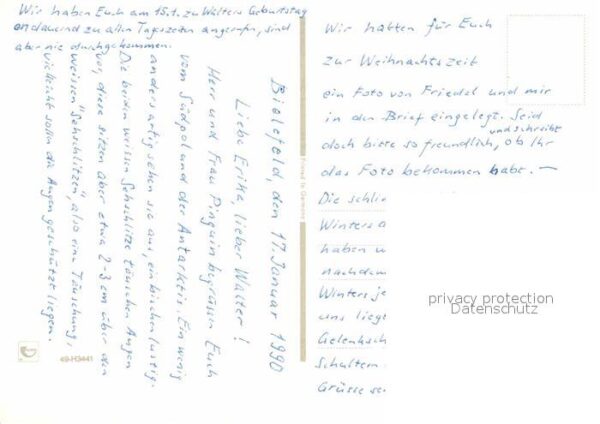 Bielefeld, den 17. Januar 1990
Liebe Erika, lieber Walter!
Herr und Frau Pinguin begrüssen Euch
vom Südpol und der Antarktis. Ein wenig
andersartig sehen sie aus, ein bischen lustig.
Die beiden weissen Sehschlitze täuschen Augen
vor, diese sitzen aber etwa 2-3 cm über den
weissen "Sehschlitzen", also eine Täuschung,
vielleicht sollen die Augen geschützt liegen.
Wir haben Euch am 15.1. zu Walters Geburtstag
andauernd zu allen Tageszeiten angerufen, sind
aber nie durchgekommen.
Wir hatten für Euch
zur Weihnachtszeit
ein Foto von Friedel und mir
in den Brief eingelegt. Seid
und schreibt
doch bitte so freundlich, ob Ihr
das Foto bekommen habt. —
Die schlie
Winters
haben
nachdem
Winters je
uns liegt
Gelenksch
Schultern
Grüsse se
privacy protection
Datenschutz
Printed in Germany
49-H3441